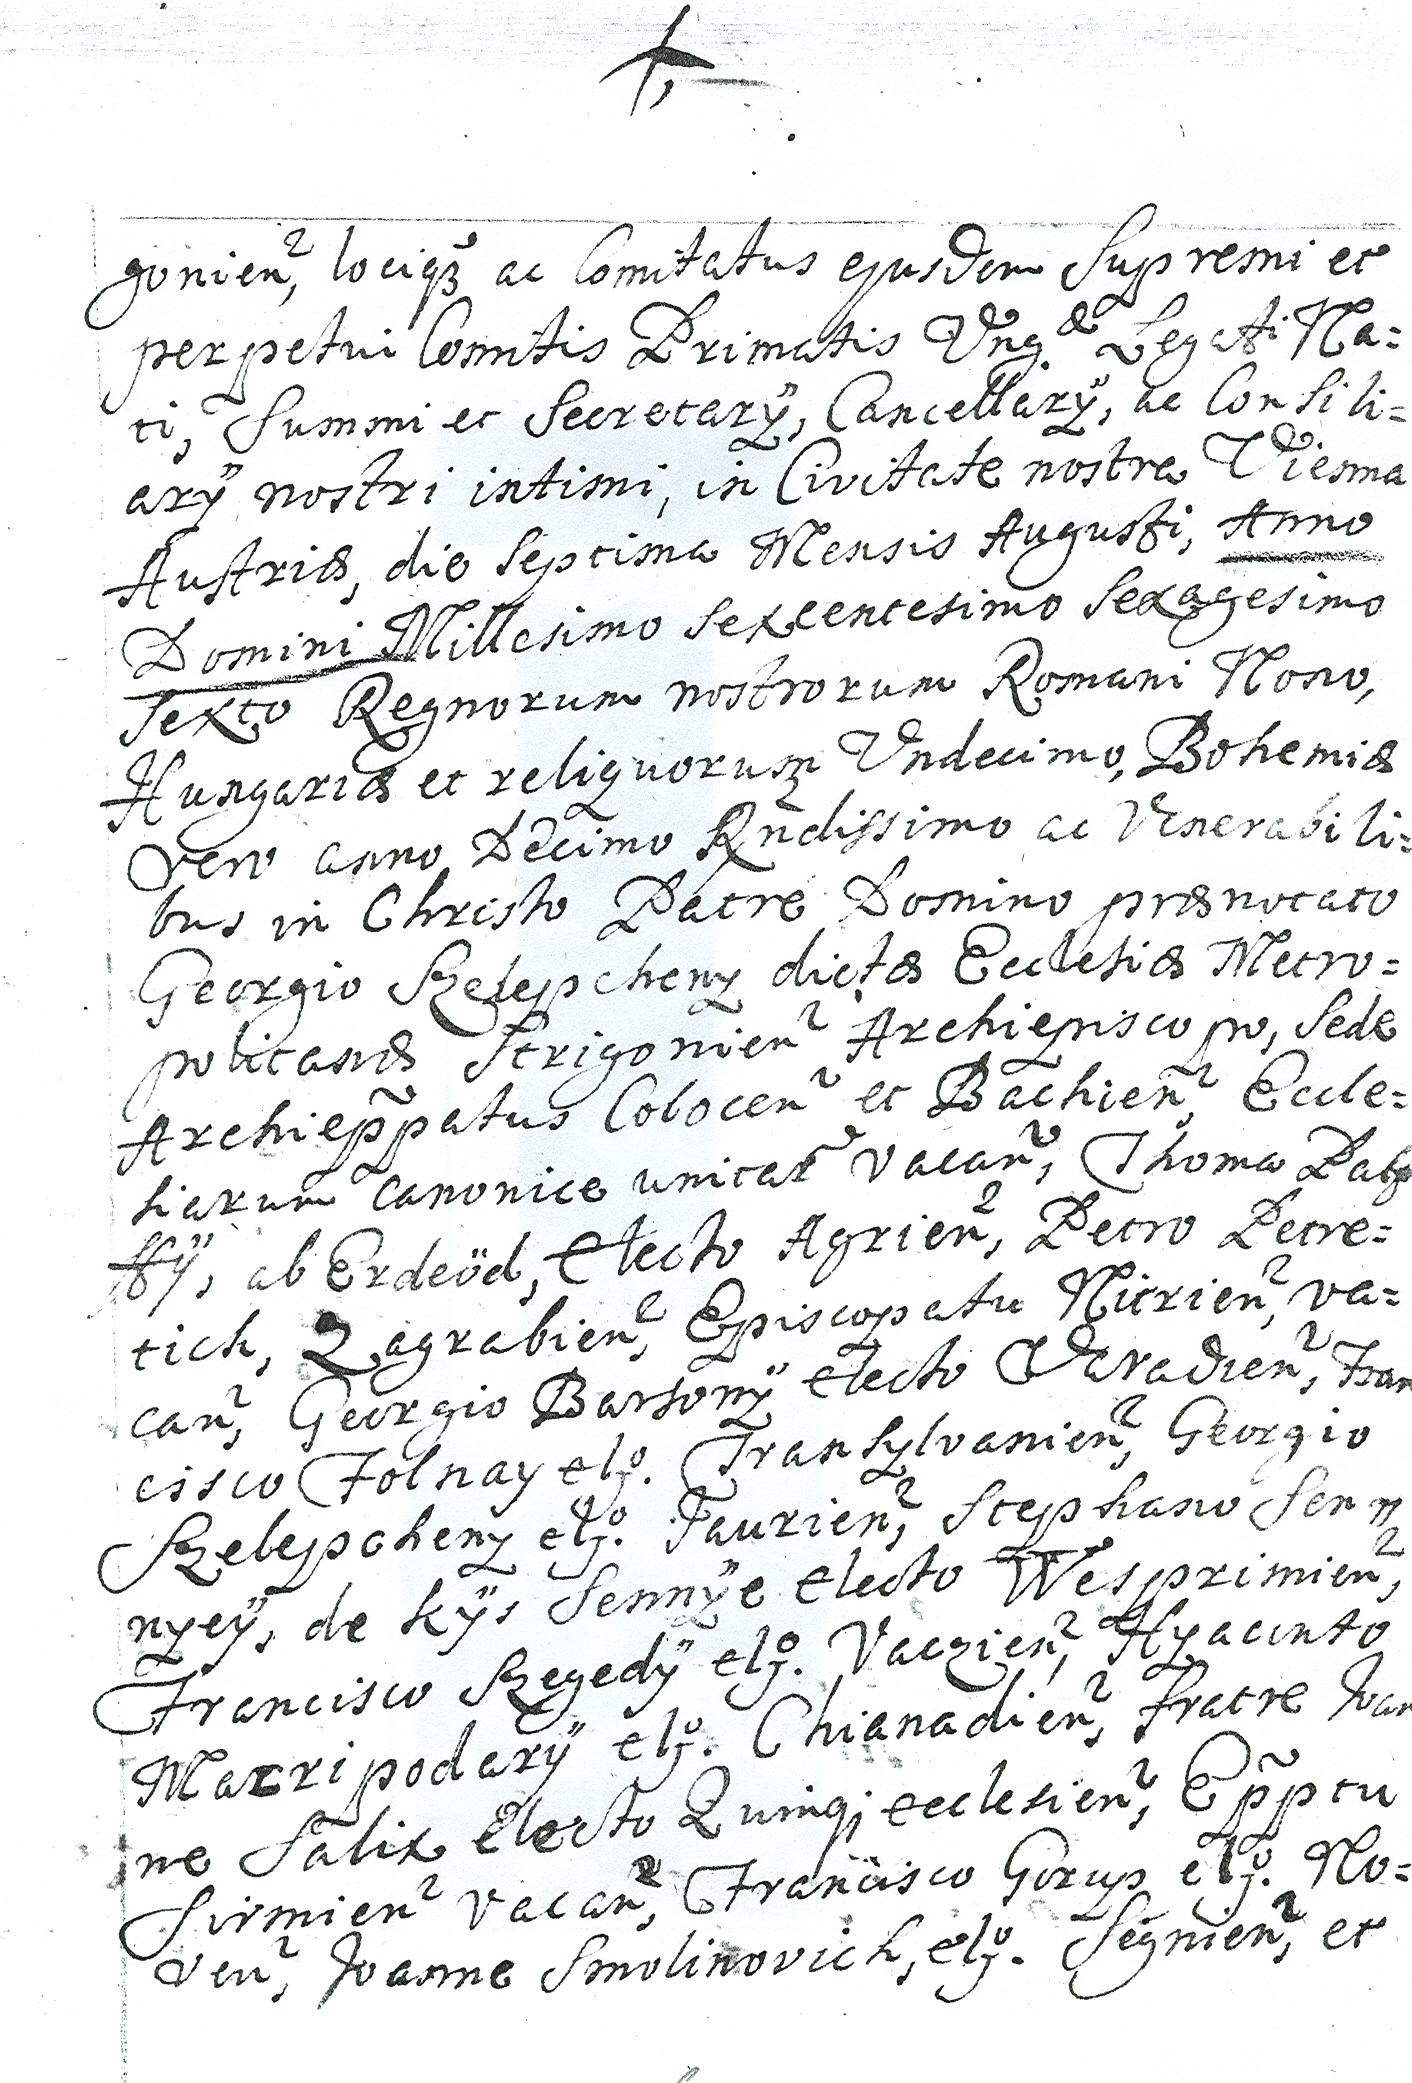 gonien̄, lociq́₃ ac Comitatus ejusdem Supremi et
perpetui Comitis Primatis Vngæ Legati Na=
ti, Summi et Secretarÿ, Cancellarÿ, ac Consili=
arÿ nostri intimi, in Civitate nostra Vienna
Austriæ, die Septima Mensis Augusti, Anno
Domini Millesimo Sexcentesimo Sexagesimo
Sexto Regnorum nostrorum Romani Nono,
Hungariæ et reliquorum Vndecimo, Bohemiæ
vero anno Decimo Rn̄dissimo ac Venerabili=
bus in Christo Patre Domino prænotato
Georgio Szelepcheny dictæ Ecclesiæ Metro=
politanæ Strigonien̄ Archiepiscopo, Sede
Archiepp̄atus Colocen̄ et Bachien̄, Eccle=
siarum canonice unitar̄ vacan̄, Thoma Palf
ffÿ, ab Erdeöd, Electo Agrien̄, Petro Petre=
tich, Zagrabien̄, Episcopatu Nitrien̄, va=
can̄, Georgio Barsonÿ electo Varadien̄, Fran
cisco Folnay elt̊. Transylvanien̄, Georgio
Szelepcheny elt̊. Jaurien̄, Stephano Senn
nyeÿ, de kÿs Sennÿe electo Wesprimien̄,
Francisco Szegedÿ elt̊. Vaczien̄, Hyacinto
Macripodarÿ elt̊. Chianadien̄, fratre Joan
ne Salix electo Quinq; ecclesien̄, Epp̄tu
Sirmien̄ vacan̄, Francisco Gorup elt̊. No=
ven̄, Joanne Smolinovich, elt̊. Segnien̄, et